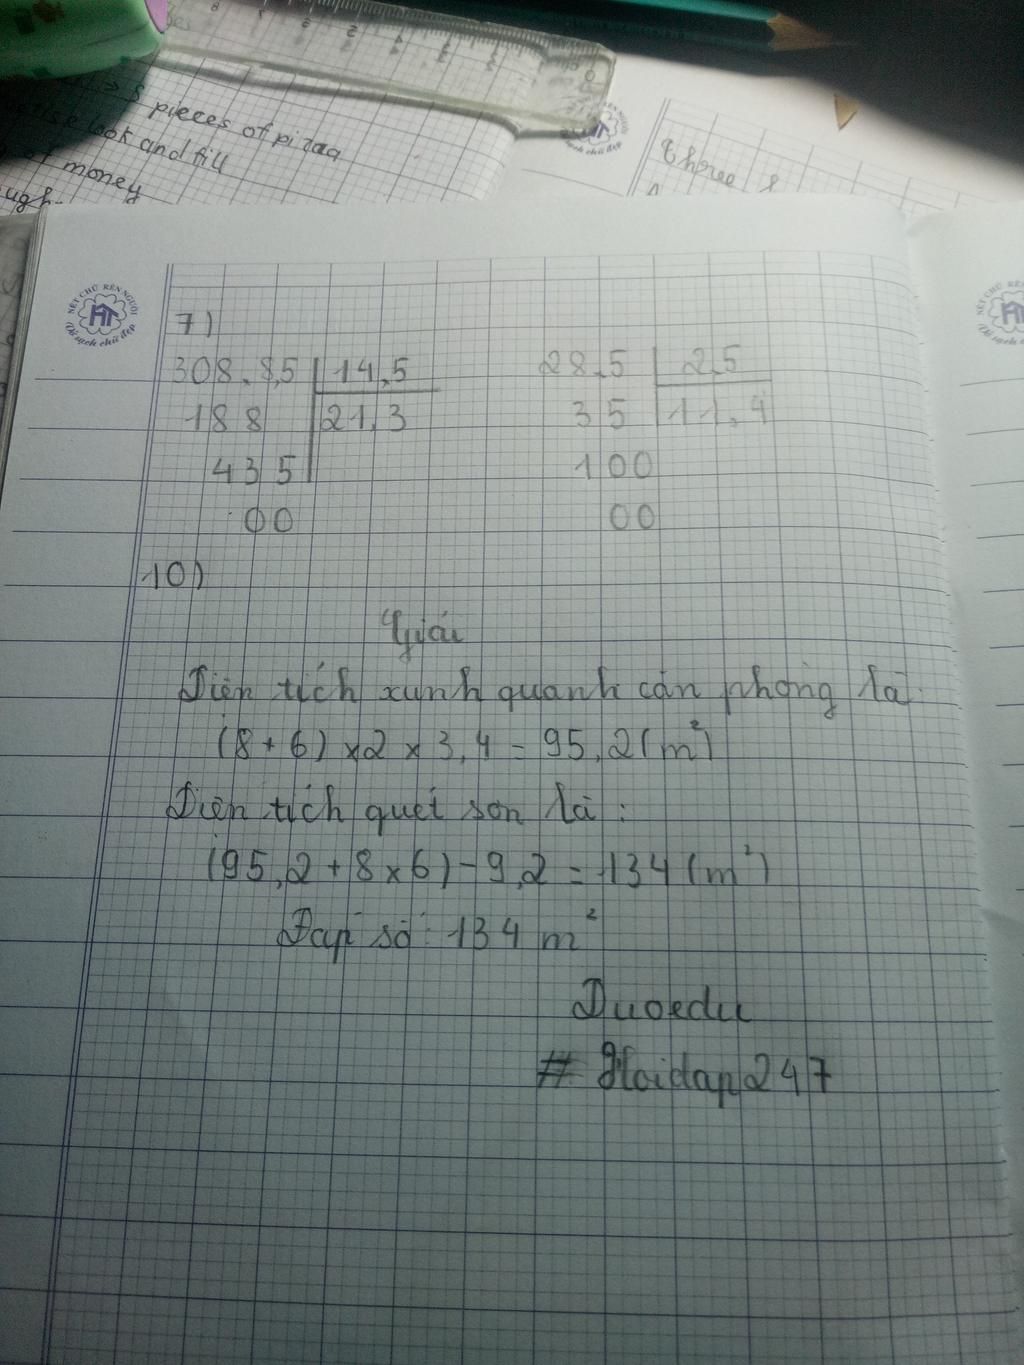 5 pieces of pizaa
look and fill
of money
ugh.
three
NÉT CHỮ RÈN NGƯỜI
Vở sạch chữ đẹp
7)
308,8,5 14,5 28,5 2,5
188 21,3 35 11,4
435 100
00 00
10)
Giải
Diện tích xunh quanh căn phòng là
(8 + 6) x 2 x 3,4 = 95,2 (m²)
Diện tích quét sơn là :
(95,2 + 8 x 6) - 9,2 = 134 (m²)
Đáp số : 134 m²
Duoedu
# Hoidap247